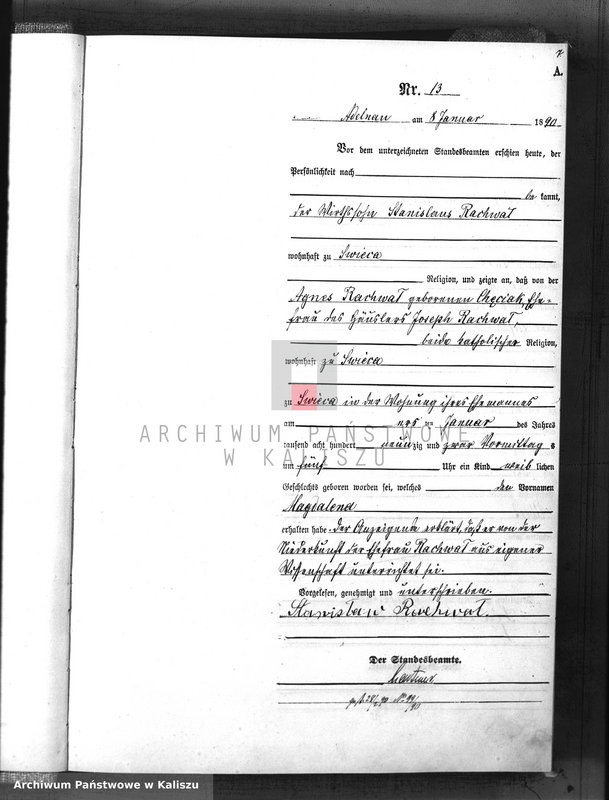 A.
Nr. 13
Adelnau am 8 Januar 1890
Vor dem unterzeichneten Standesbeamten erschien heute, der
Persönlichkeit nach
be kannt,
der Wirthssohn Stanislaus Rachwat
wohnhaft zu Swieca
Religion, und zeigte an, daß von der
Agnes Rachwat geborenen Checiak, Ehe-
frau des Häuslers Joseph Rachwat,
beide katholischer Religion,
wohnhaft zu Swieca
zu Swieca in der Wohnung ihres Ehemannes
am ers ten Januar des Jahres
tausend acht hundert neunzig und zwar Vormittag s
um fünf Uhr ein Kind weib lichen
Geschlechts geboren worden sei, welches den Vornamen
Magdalena
erhalten habe. Der Anzeigende erklärt, daß er von der
Niederkunft der Ehefrau Rachwat aus eigener
Wissenschaft unterrichtet sei.
Vorgelesen, genehmigt und unterschrieben.
Stanisław Rachwat.
Der Standesbeamte.
ARCHIWUM PAŃSTWOWE
W KALISZU
Archiwum Państwowe w Kaliszu